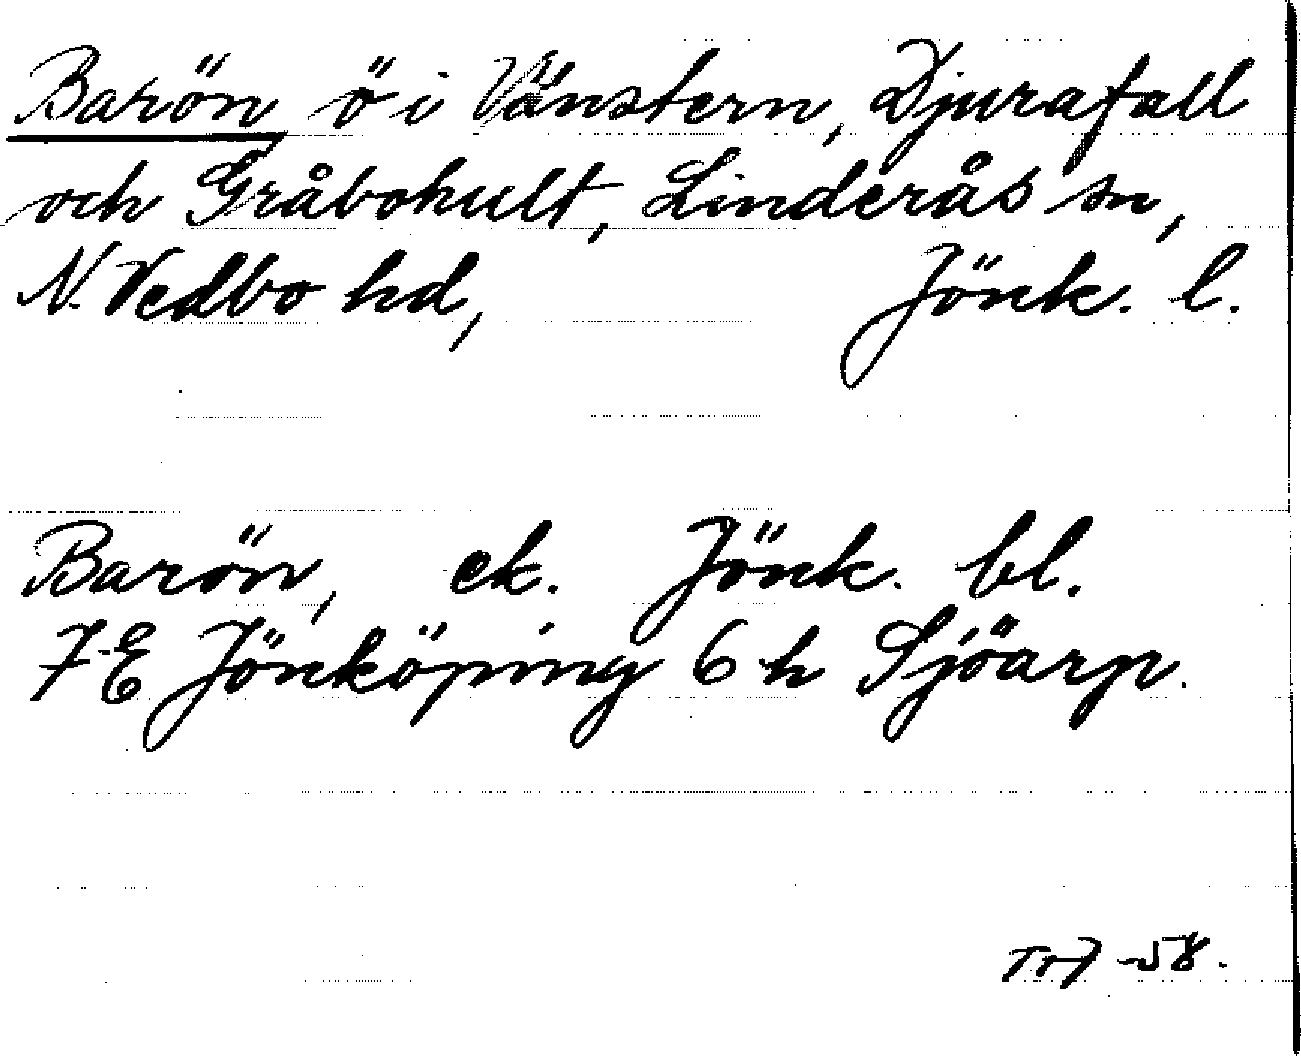 Barön ö i Vänstern, Djurafall
och Gråbokult, Linderås sn,
N. Vedbo hd, Jönk. l.
Barön, ek. Jönk. bl.
7 E Jönköping 6 h Sjöarp.
-58.